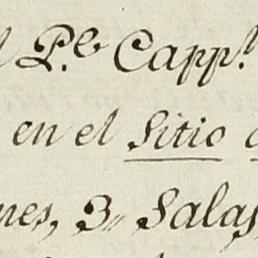 P.e Capp.
en el Sitio
nes, 3,, Salas